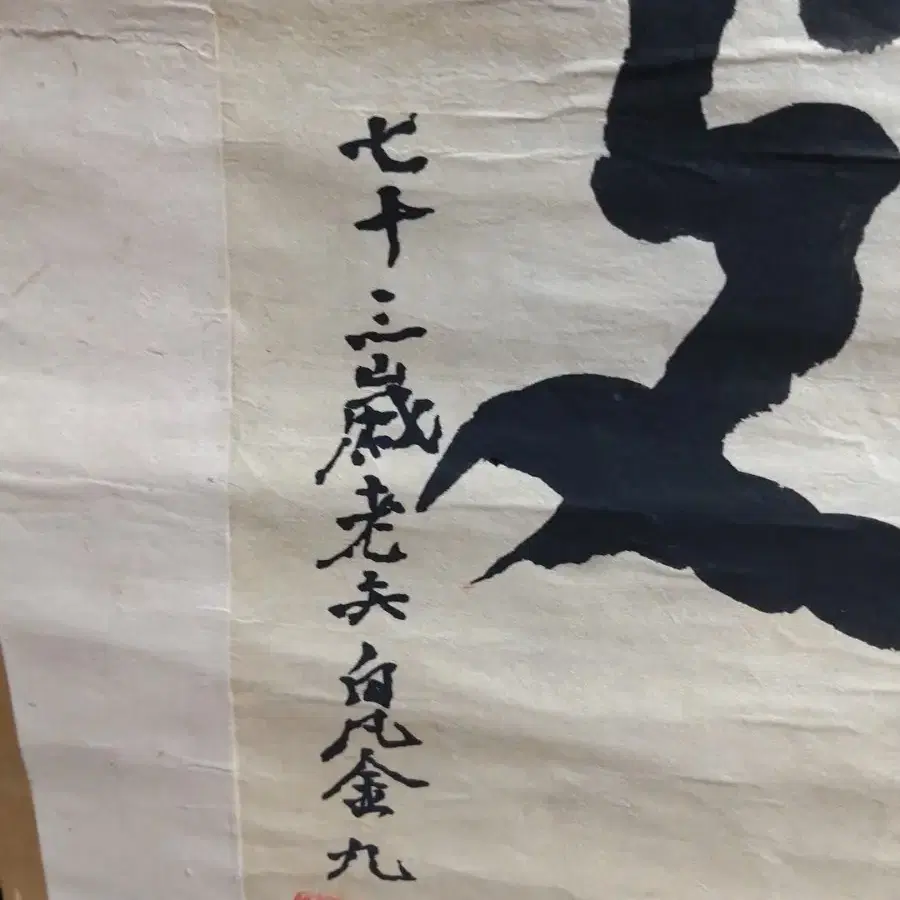 七十三歲老夫白凡金九